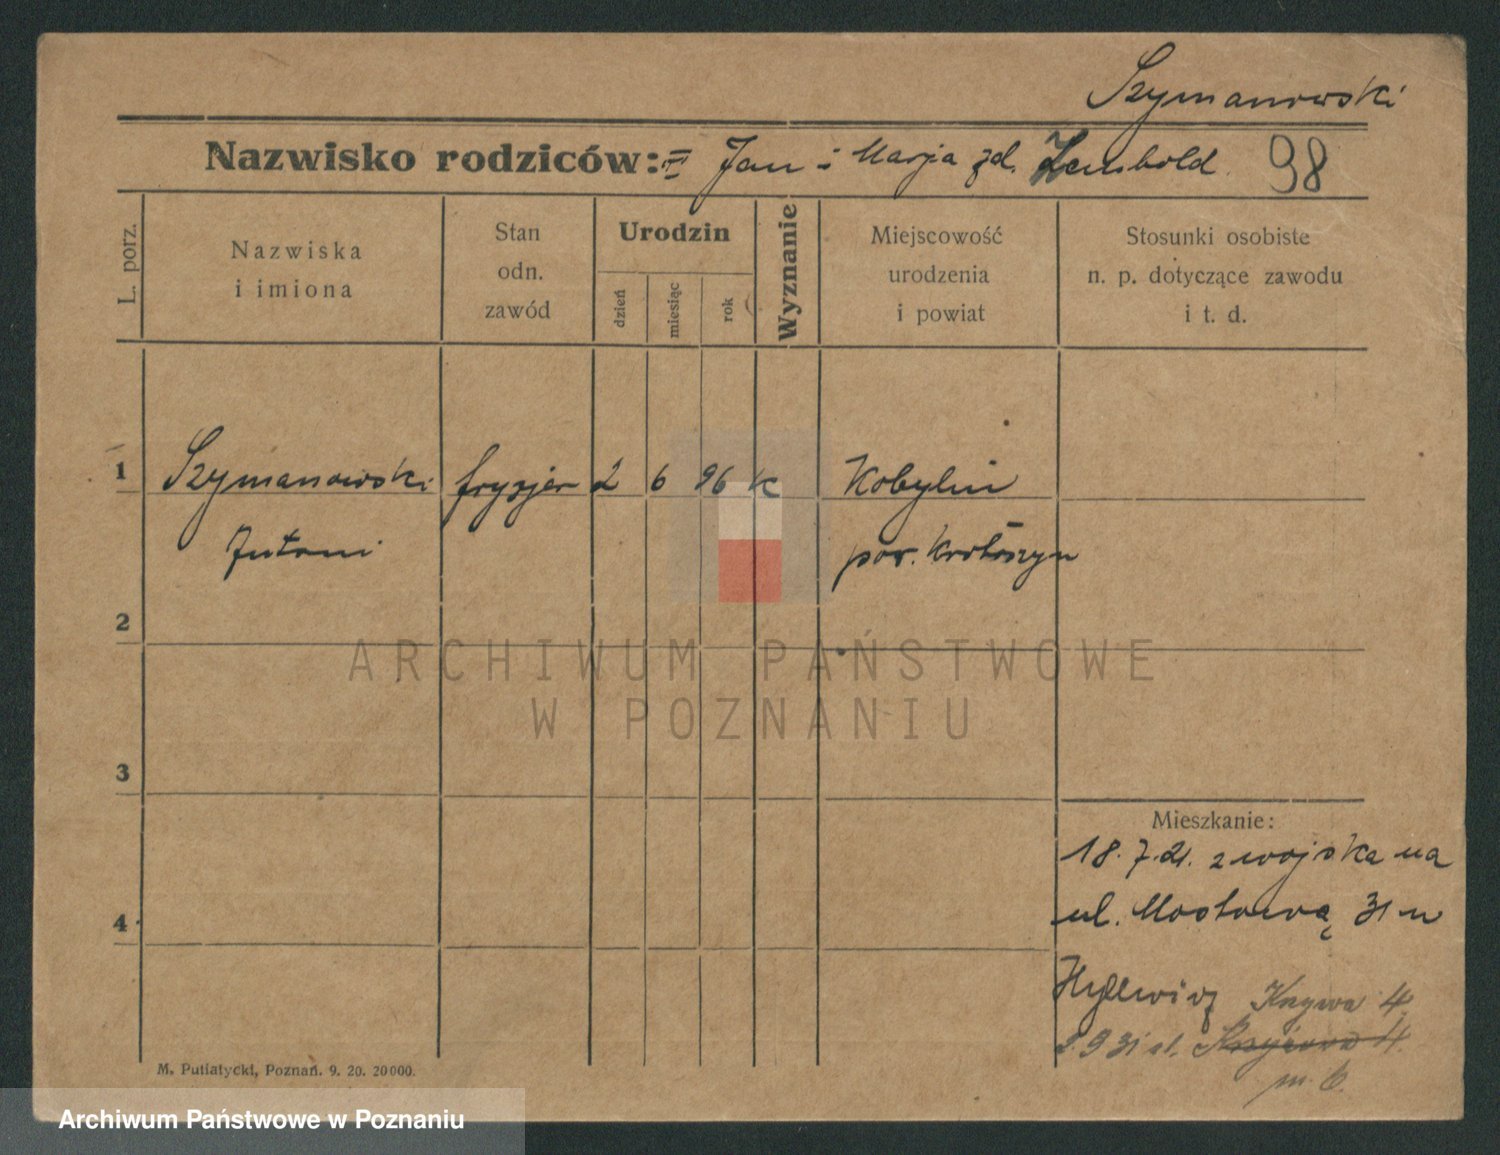 Szymanowski
Nazwisko rodziców: Jan i Marja zd. Lembold 98
L. porz.
Nazwiska
i imiona
Stan
odn.
zawód
Urodzin
dzień
miesiąc
rok
Wyznanie
Miejscowość
urodzenia
i powiat
Stosunki osobiste
n. p. dotyczące zawodu
i t. d.
1 Szymanowski fryzjer 2 6 96 k Kobylin
Antoni pow. Krotoszyn
2
3
4
Mieszkanie:
18.7.21. z wojska na
ul. Mostową 31 u
Krzywa 4
2.9 31 ul. Krzywa 4.
m. 6.
M. Putiatycki, Poznań. 9. 20. 20000.
ARCHIWUM PAŃSTWOWE
W POZNANIU
Archiwum Państwowe w Poznaniu